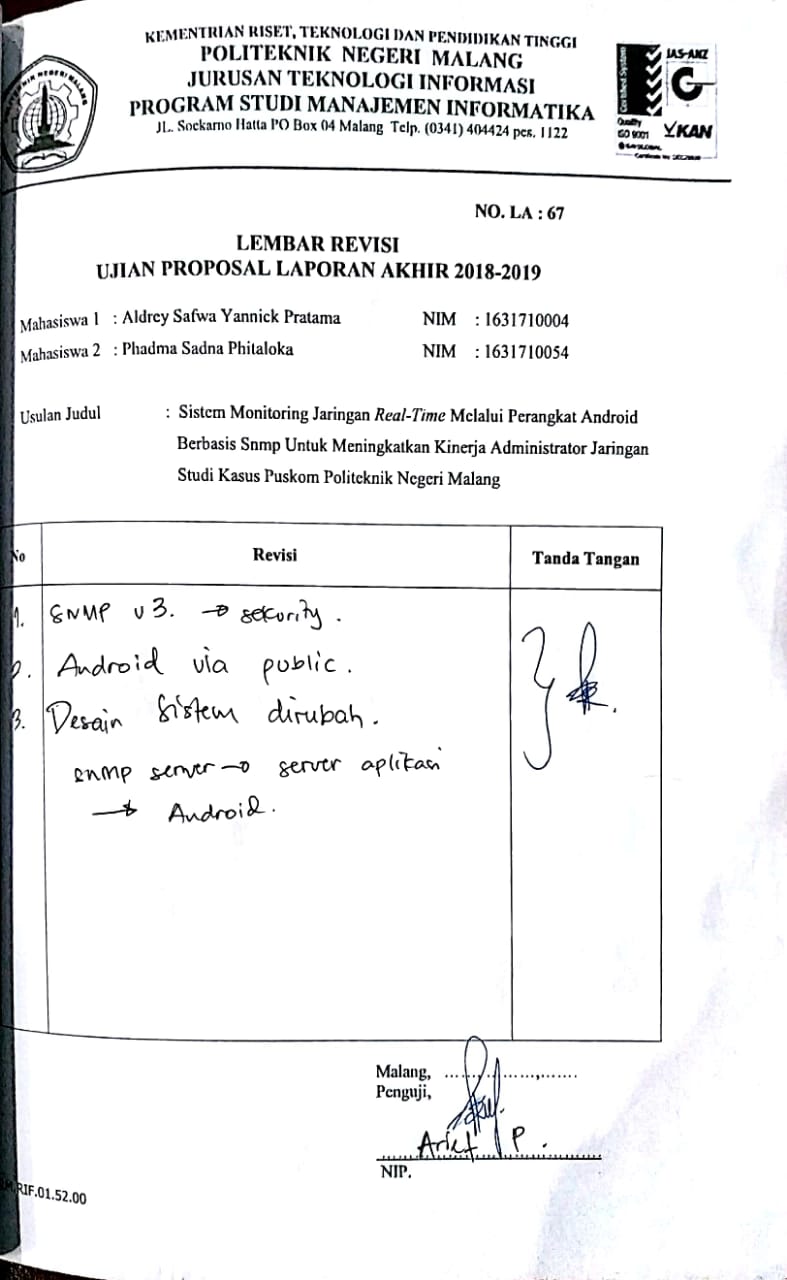 KEMENTRIAN RISET, TEKNOLOGI DAN PENDIDIKAN TINGGI
POLITEKNIK NEGERI MALANG
JURUSAN TEKNOLOGI INFORMASI
PROGRAM STUDI MANAJEMEN INFORMATIKA
JL. Soekarno Hatta PO Box 04 Malang Telp. (0341) 404424 pes. 1122
Certified System
JAS-ANZ
Quality
ISO 9001
KAN
NO. LA : 67
LEMBAR REVISI
UJIAN PROPOSAL LAPORAN AKHIR 2018-2019
Mahasiswa 1 : Aldrey Safwa Yannick Pratama NIM : 1631710004
Mahasiswa 2 : Phadma Sadna Phitaloka NIM : 1631710054
Usulan Judul : Sistem Monitoring Jaringan Real-Time Melalui Perangkat Android
Berbasis Snmp Untuk Meningkatkan Kinerja Administrator Jaringan
Studi Kasus Puskom Politeknik Negeri Malang
No Revisi Tanda Tangan
1. SNMP v3. → sekurity.
2. Android via public.
3. Desain Sistem dirubah.
snmp server → server aplikasi
→ Android.
Malang, ..............,.......
Penguji,
Arief P.
NIP.
RIF.01.52.00